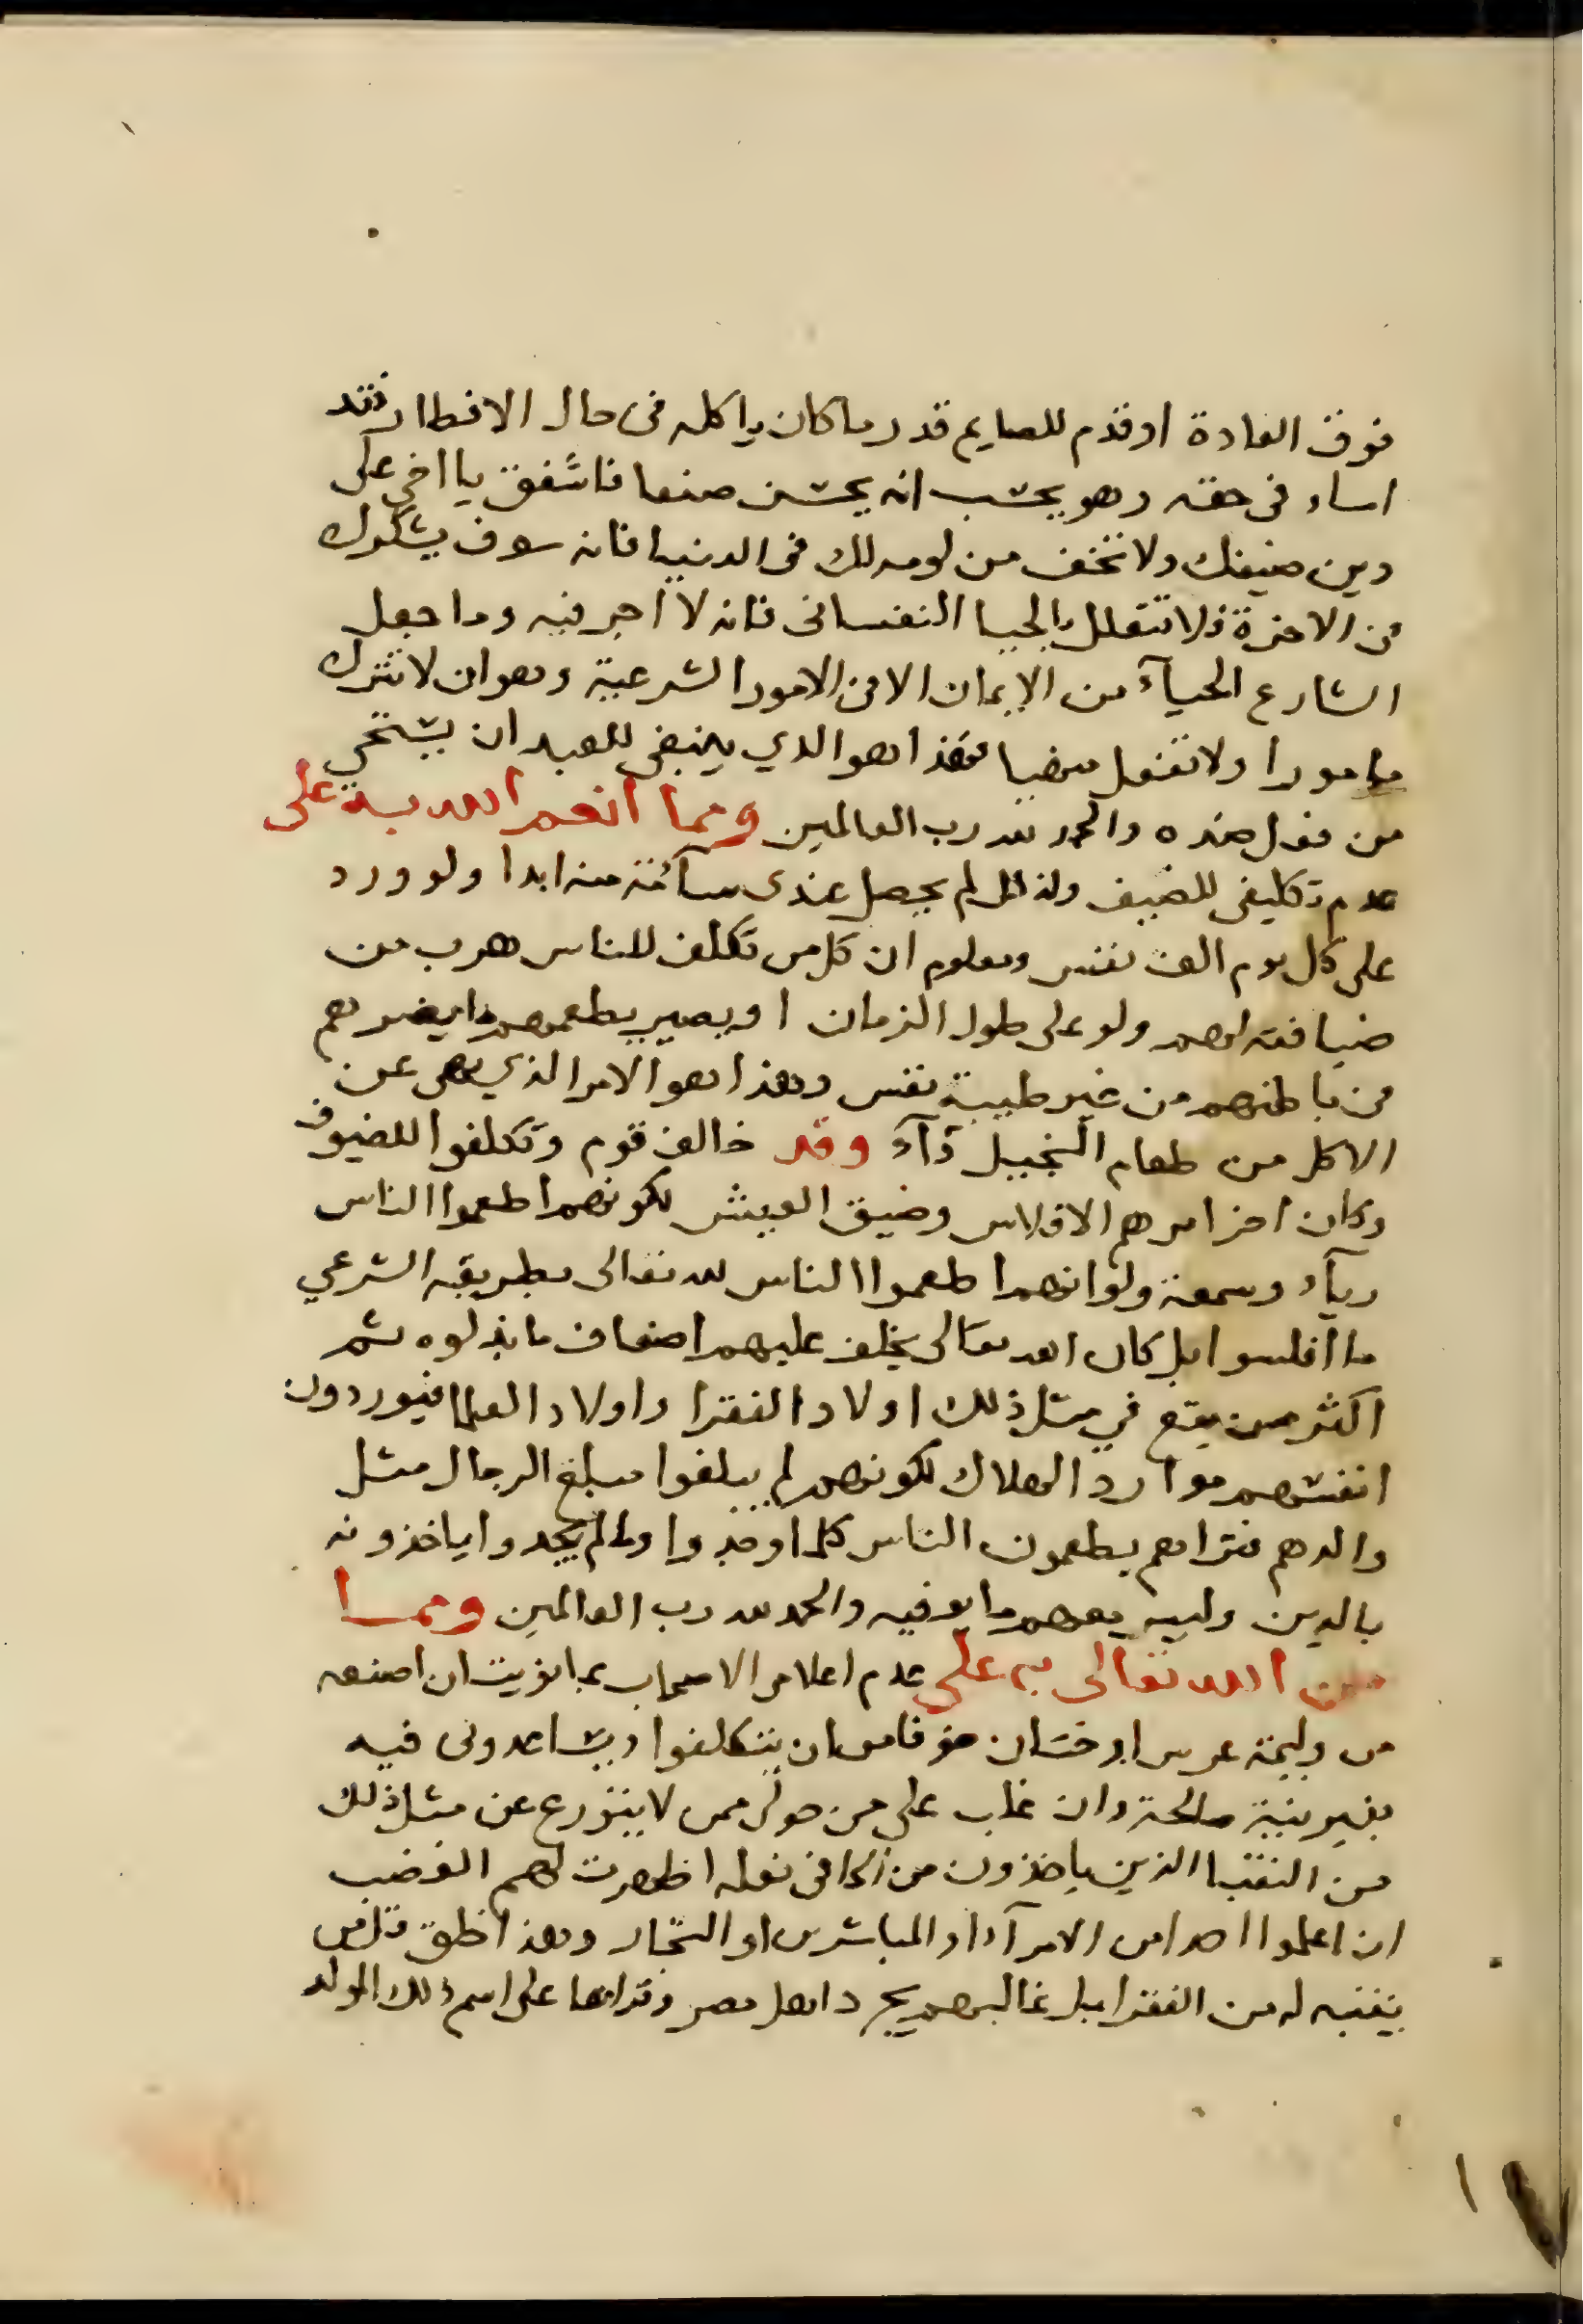 فوق العادة او قدم للصايم قدر ما كان ياكله فى حال الافطار فقد
اساء فى حقه وهو يحسب انه يحسن صنعا فاشفق يا اخي على
دين ضيفك ولا تخف من لومه لك فى الدنيا فانه سوف يشكرك
فى الاخرة فلا تتعلل بالحيا النفسانى فانه لا اجر فيه وما جعل
الشارع الحيآء من الايمان الا فى الامور الشرعية وهو ان لا تترك
مامورا ولا تفعل منهيا فهذا هو الذي ينبغى للعبد ان يستحي
من فعل ضده والحمد لله رب العالمين ومما انعم الله به على
عدم تكليفى للضيف ولذلك لم يحصل عندى سآمة منه ابدا ولو ورد
على كل يوم الف نفس ومعلوم ان كل من تكلف للناس هرب من
ضيافته لهم ولو على طول الزمان او يصير يطعمهم ما يضرهم
فى باطنهم من غير طيبة نفس وهذا هو الامر الذي نهى عن
الاكل من طعام البخيل دآء وقد خالف قوم وتكلفوا للضيوف
وكان اخر امرهم الافلاس وضيق العيش لكونهم اطعموا الناس
ريآء وسمعة ولو انهم اطعموا الناس لله تعالى بطريقه الشرعي
ما افلسوا بل كان الله تعالى يخلف عليهم اضعاف ما بذلوه ثم
اكثر من يقع في مثل ذلك اولاد الفقرا واولاد العلما فيوردون
انفسهم موارد الهلاك لكونهم لم يبلغوا مبلغ الرجال مثل
والدهم فتراهم يطعمون الناس كلما وجدوا وما لم يجدوا ياخذونه
بالدين وليس معهم ما يوفيه والحمد لله رب العالمين ومما
من الله تعالى به على عدم اعلام الاصحاب بما نويت ان اصنعه
من وليمة عرس او ختان خوفا من ان يتكلفوا ويساعدونى فيه
بغير نية صالحة وان غاب على من حولى ممن لا يتورع عن مثل ذلك
من النقبا الذين ياخذون من فى نعله اظهرت لهم الغضب
ان اعلموا احدا من الامرآء او المباشرين او التجار وهذا خلق قل من
يتنبه له من الفقرا بل غالبهم يجرد اهل مصر وقراها على اسم ذلك المولد
١٧